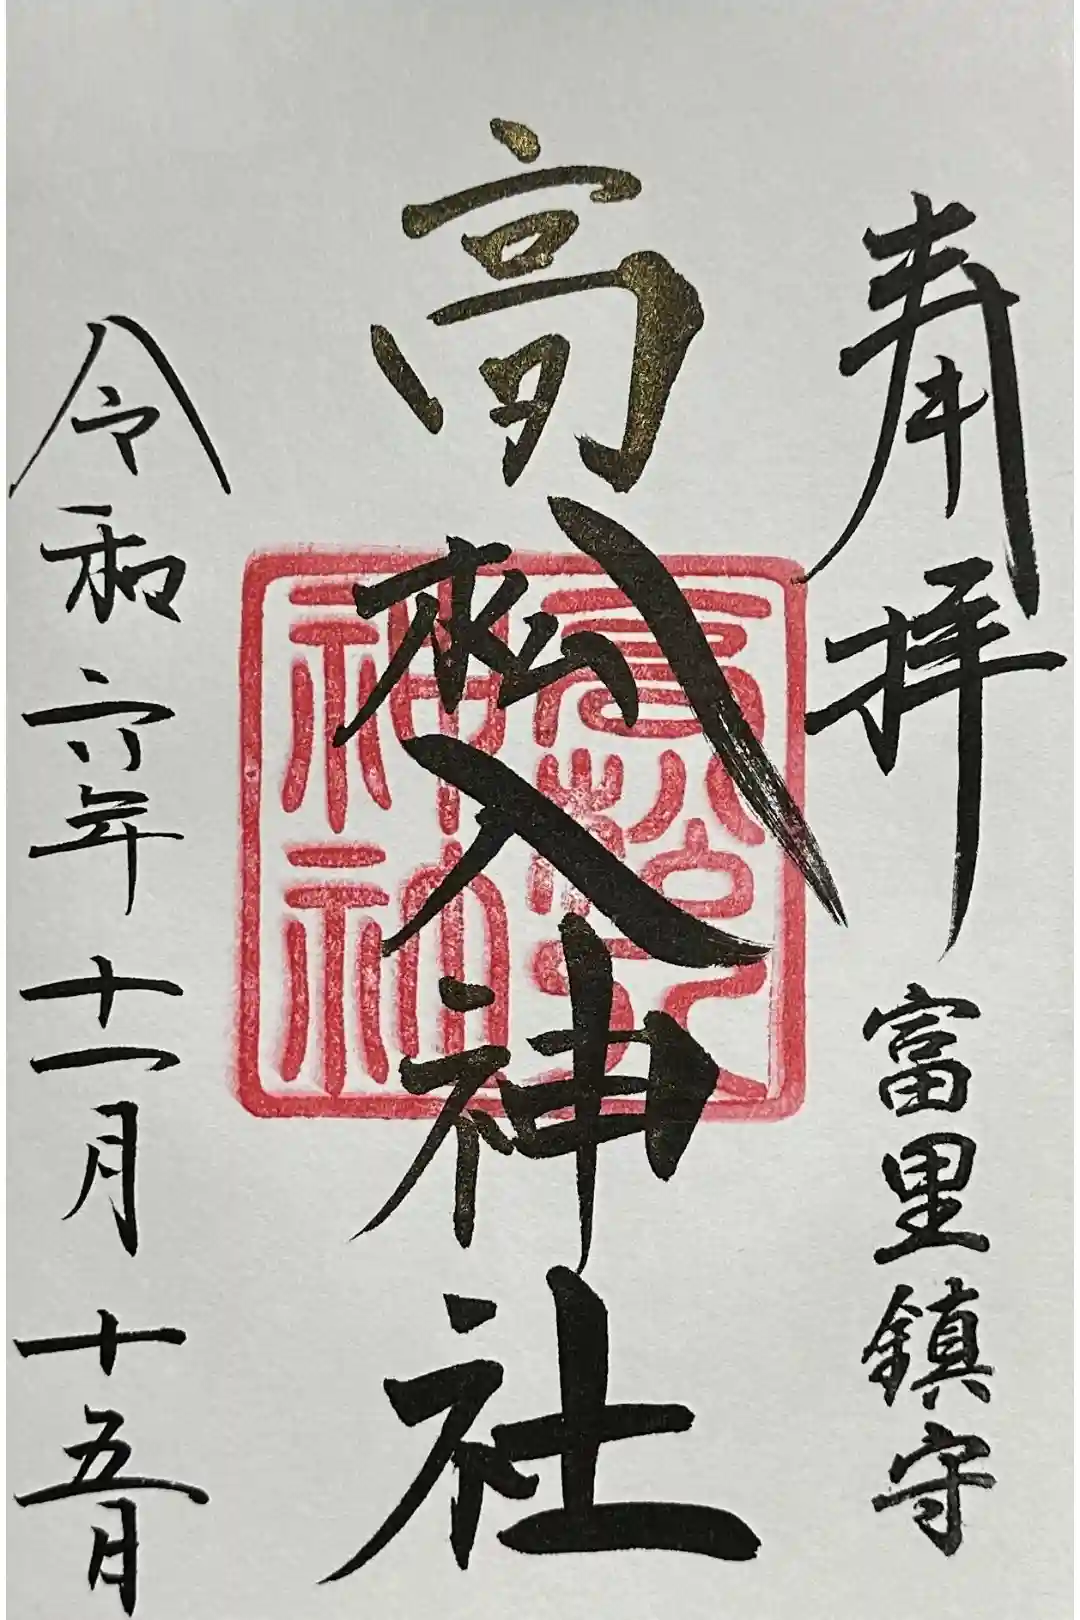 奉拝
富里鎮守
高松入神社
高松入
神社
令和六年十一月十五月